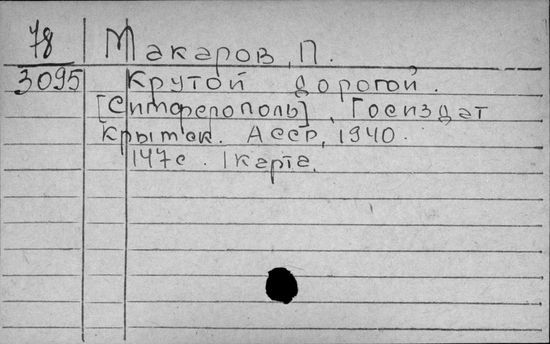 78 Макаров, П.
3095 Крутой дорогой.
[Симферополь], Госиздат
Крымск. АССР, 1940.
147с. 1 карта.